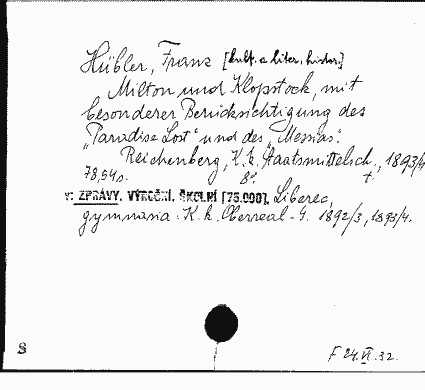 Hübler, Franz [kult. a liter. histor.]
Milton und Klopstock, mit
besonderer Berücksichtigung des
„Paradise Lost" und des „Messias".
Reichenberg, K. k. Staatsmittelsch., 1893/4
78,54 s. 8°. †.
v: ZPRÁVY. VÝROČNÍ. ŠKOLNÍ [75.000]. Liberec,
gymnasia. K. k. Oberreal-G. 1892/3, 1893/4.
F 24.VI.32.